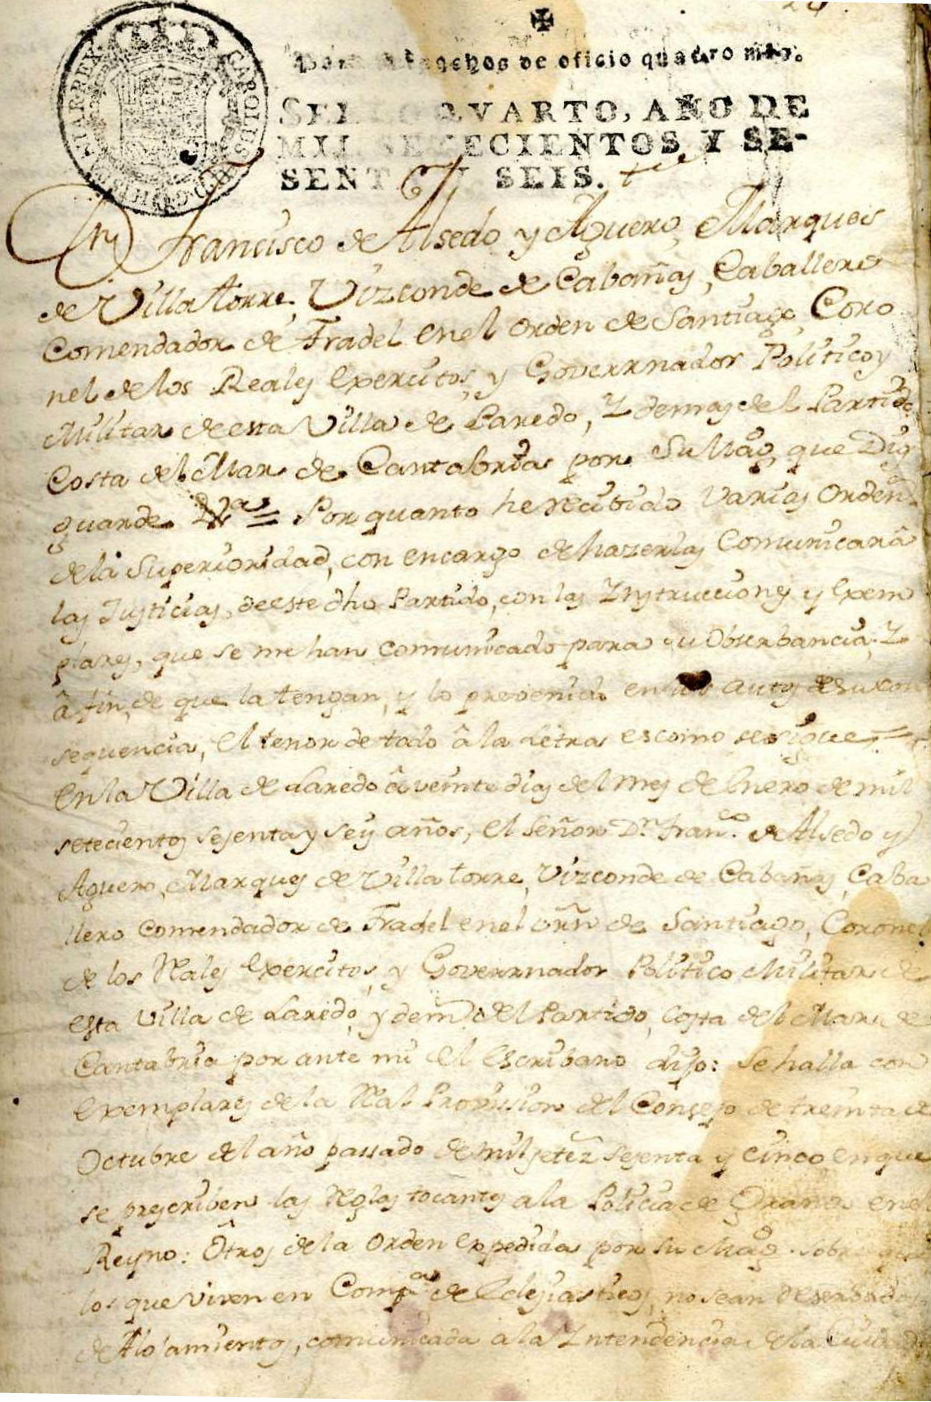 CAROLUS III D G HISPANIAR REX
despachos de oficio quatro mrs.
SELLO QVARTO, AÑO DE
MIL SETECIENTOS Y SE-
SENTA Y SEIS.
Dn Francisco de Alsedo y Aguero, Marques
de Villa torre, Vizconde de Cabañas, Caballero
Comendador de Fradel en el orden de Santiago, Coro
nel de los Reales Exercitos, y Governador Politico y
Militar de esta Villa de Laredo, Y demas del Partido
Costa del Mar de Cantabria por Su Mag. que Dios
guarde = Por quanto he recibido varias Orden.
de la Superioridad, con encargo de hazerlas Comunicar â
las Justicias, de este dho Partido, con las Ynstrucciones y Exem
plares, que se me han comunicado para su Obserbancia, Y
â fin, de que la tengan, y lo prevenido en los autos de su con
sequencia, el tenor de todo â la letra es como se sigue =
En la Villa de Laredo â veinte dias del mes de Enero de mil
setecientos sesenta y seis años, el Señor Dn. Franco. de Alsedo y
Aguero, Marques de Villa torre, Vizconde de Cabañas, Caba
llero Comendador de Fradel en el orñ de Santiago, Coronel
de los Rales Exercitos, y Governador Politico Militar de
esta Villa de Laredo, y dem. del Partido, Costa del Mar de
Cantabria por ante mi el Escribano dijo: Se halla con
Exemplares de la Ral Provision del Consejo de treinta de
Octubre del año passado de mil setez. sesenta y cinco en que
se prescriben las Reglas tocantes a la Policia de Granos en el
Reyno: Otros de la Orden expedida por su Mag. sobre que
los que viven en Compa. de Eclesiasticos, no sean
de Alojamientos, comunicada a la Yntendencia de la Ciudad